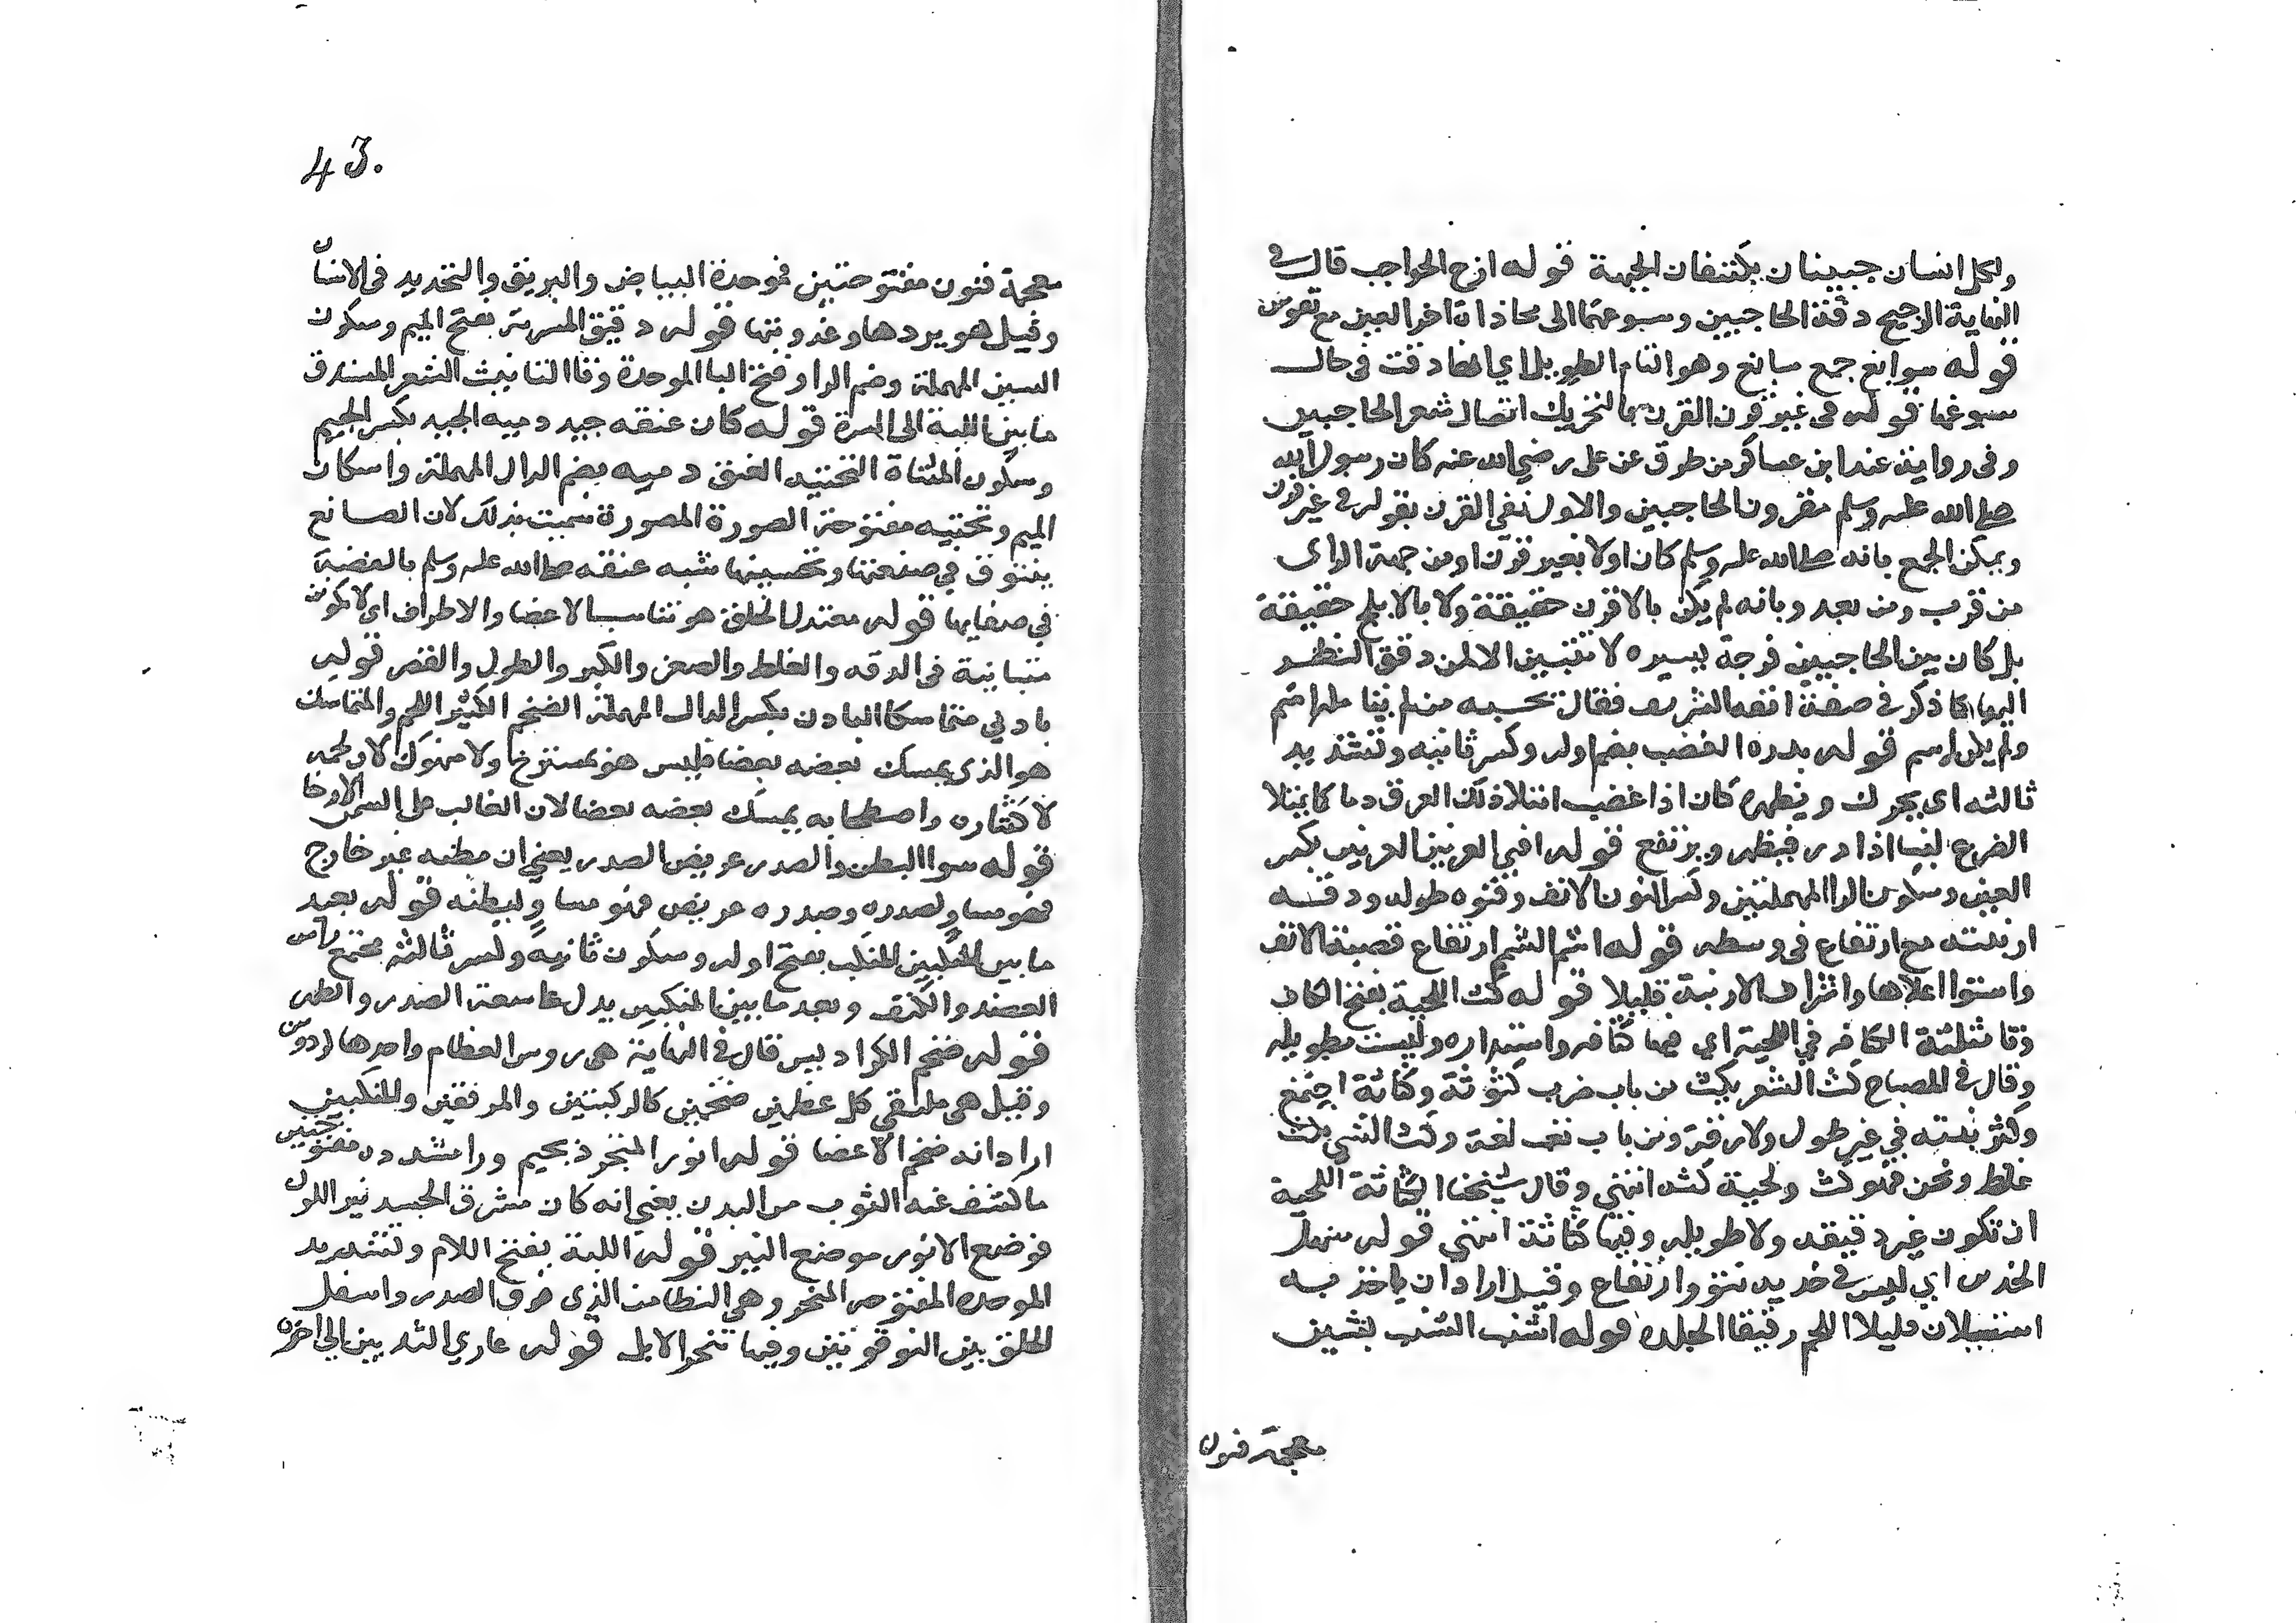 ولكل انسان جبينان يكتنفان الجبهة قوله ازج الحواجب قال في
النهاية الزجج دقة الحاجبين وسبوغهما الى محاذاة اخر العين مع تقوس
قوله سوابغ جمع سابغ وهو التام الطويل اي انها دقت في حال
سبوغها قوله في غير قرن القرن بالتحريك اتصال شعر الحاجبين
وفي رواية عند ابن عساكر من طرق عن علي رضي الله عنه كان رسول الله
صلى الله عليه وسلم مقرون الحاجبين والاول نفي القرن بقوله في غير قرن
ويمكن الجمع بانه صلى الله عليه وسلم كان اولا بغير قرن اومن جهة الراى
من قرب ومن بعد وبانه لم يكن بالاقرن حقيقة ولا بالابلج حقيقة
بل كان بين الحاجبين فرجة يسيره لا تتبين الا لمن دقق النظر
اليها كما ذكر في صفة انفه الشريف فقال يحسبه من لم يتامله اشم
ولم يكن اشم قوله يدره الغضب بضم اوله وكسر ثانيه وتشديد
ثالثه اى يحرك ويظهره كان اذا غضب امتلا ذلك العرق دما كما يمتلا
الضرع لبنا اذا در فيظهر ويرتفع قوله اقنى العرنين العرنين بكسر
العين وسكون الرا المهملتين وكسر النون الانف وقنوه طوله ودقة
ارنبته مع ارتفاع في وسطه قوله اشم الشمم ارتفاع قصبة الانف
واستوا اعلاها واشراف الارنبة قليلا قوله كث اللحية بفتح الكاف
وثا مثلثة الكثافه في اللحية اي فيها كثافه واستداره وليست بطويله
وقال في المصباح كث الشعر يكث من باب ضرب كثوثة وكثاثة اجتمع
وكثر نبته في غير طول ولا رقة ومن باب تعب لغة وكث الشي يكث
غلظ وثخن فهو كث ولحية كثه انتهى وقال شيخنا الكثاثة اللحية
ان تكون غير دقيقه ولا طويله وفيها كثاثة انتهى قوله سهل
الخدين اي ليس في خديه نتو وارتفاع وقيل اراد ان ياخذ به
اسيلان قليلا اللحم رقيقا الجلده قوله اشنب الشنب بشين
معجمة فنون
43.
معجمة فنون مفتوحتين فوحدة البياض والبريق والتحديد في الاسنان
وقيل هو بردها وعذوبتها قوله دقيق المسربة بفتح الميم وسكون
السين المهملة وضم الرا وفتح البا الموحدة وتا التانيث الشعر المستدق
ما بين اللبة الى السرة قوله كان عنقه جيد دميه الجيد بكسر الجيم
وسكون المثناة التحتيه العنق دميه بضم الدال المهملة واسكان
الميم وتحتيه مفتوحة الصورة المصورة سميت بذلك لان الصانع
يتنوق في صنعتها وتحسينها شبه عنقه صلى الله عليه وسلم بالفضة
في صفايها قوله معتدل الخلق هو تناسب الاعضا والاطراف اى لا تكون
متباينة في الدقه والغلظ والصغر والكبر والطول والقصر قوله
بادني متماسكا البادن بكسر الدال المهملة الضخم الكثير اللحم والمتماسك
هو الذي يمسك بعضه بعضا فليس هو بمسترخ ولا منهوك لان لحمه
لاكتثاره واصطحابه يمسك بعضه بعضا لان الغالب على السمن الارخا
قوله سوا البطن والصدر عريض الصدر يعني ان بطنه غير خارج
فهو مساو لصدره وصدره عريض فهو مساو لبطنه قوله بعيد
ما بين المنكبين المنكب بفتح اوله وسكون ثانيه وكسر ثالثه مجتمع راس
العضد والكتف وبعد ما بين المنكبين يدل على سعة الصدر والظهر
قوله ضخم الكراديس قال في النهاية هي روس العظام واحدها كردوس
وقيل هي ملتقى كل عظمين ضخمين كالركبتين والمرفقين والمنكبين
اراد انه ضخم الاعضا قوله انور المتجرد بجيم ورا مشدده مفتوحتين
ما كشف عنه الثوب من البدن يعني انه كان مشرق الجسد نير اللون
فوضع الانور موضع النير قوله اللبة بفتح اللام وتشديد
الموحده المفتوحه المنحر وهي النطامن الذي فوق الصدر واسفل
الحلق بين الترقوتين وفيها تنحر الابل قوله عاري الثديين الى اخره